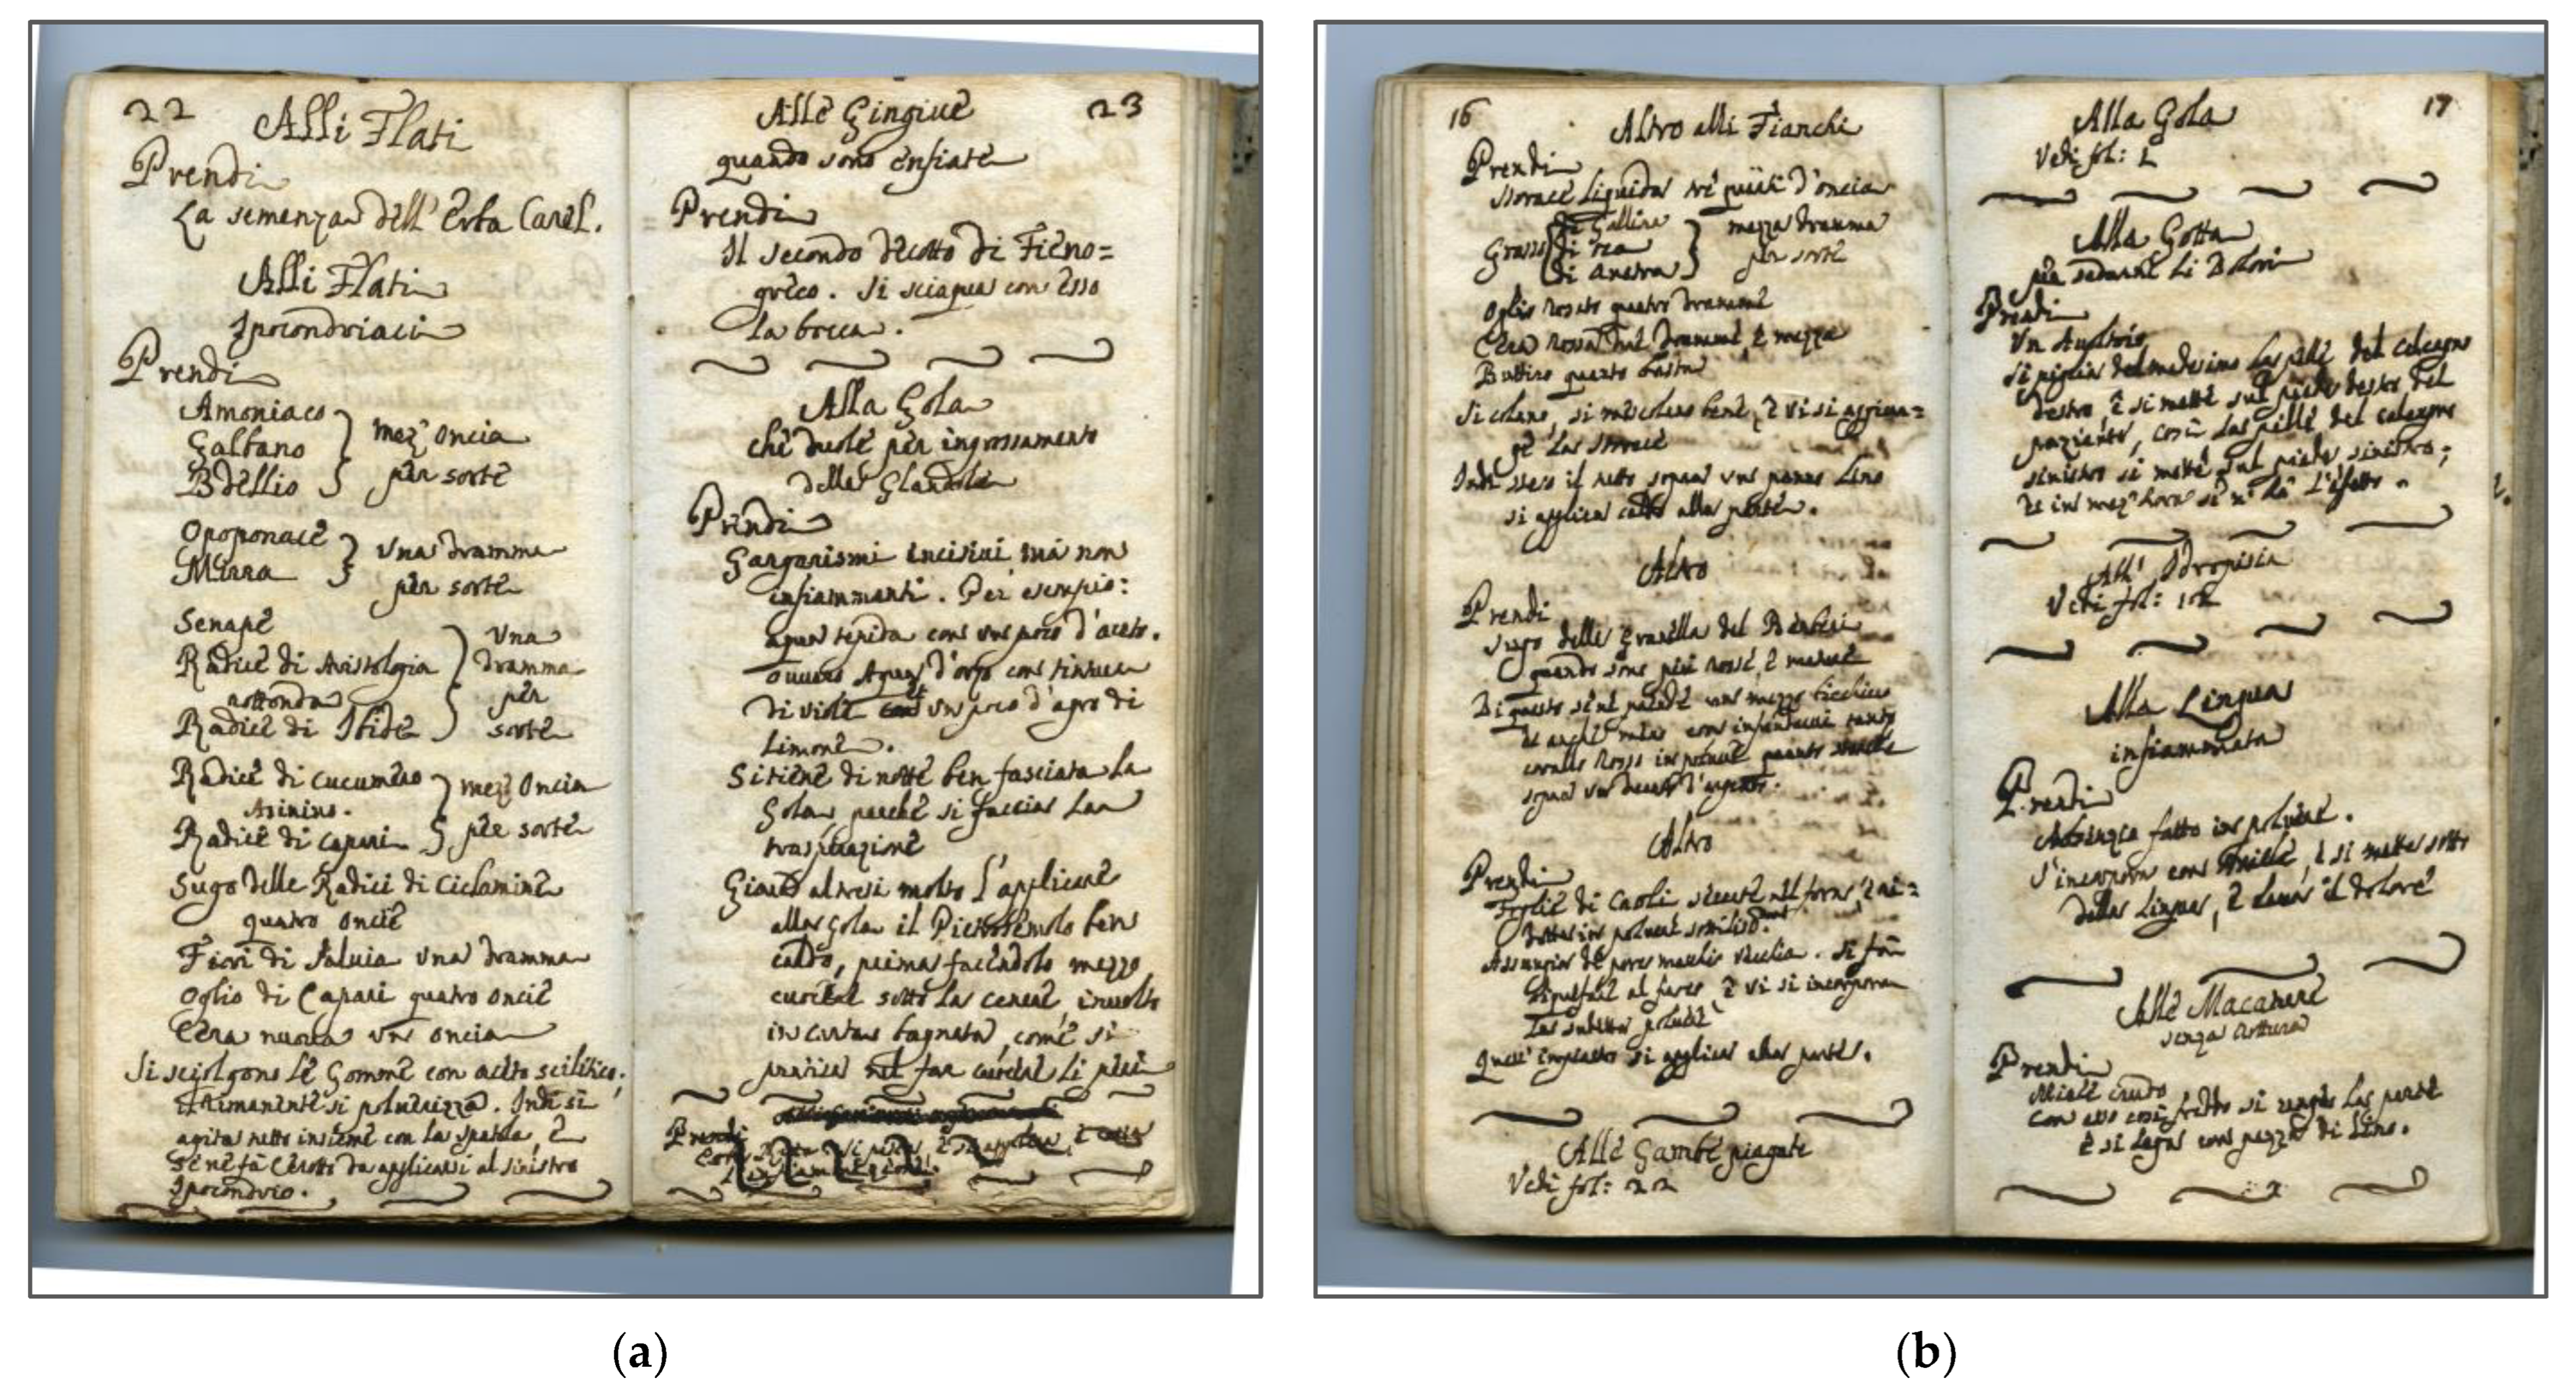 22
Alli Flati
Prendi
La semenza dell' Erba Carel.
Alli Flati
Ipocondriaci
Prendi
Amoniaco
Galbano
Bdellio
mez' oncia
per sorte
Opoponace
Mirra
Una dramma
per sorte
Senape
Radice di Aristologia
rottonda
Radice di Iride
Una
dramma
per
sorte
Radice di cucumero
Asinino.
Radice di capari
mez' Oncia
per sorte
Sugo delle Radici di Ciclamine
quatro oncie
Fiori di Saluia Una dramma
Oglio di Capari quatro oncie
Cera nuova un oncia
Si sciolgono le Gomme con aceto scilitico;
il rimanente si poluerizza. Indi si
agita netto insieme con la spatola, e
se ne fà Cerotto da applicarsi al sinistro
Ipocondrio.
23
Alle Gingiue
quando sono enfiate
Prendi
Il secondo decotto di Fieno=
greco. Si sciaqua con esso
la bocca.
Alla Gola
che duole per ingrossamento
delle Glandole
Prendi
Gargarismi incisiui mà non
infiammanti. Per esempio:
aqua tepida con un poco d'aceto.
ouuero Aqua d'orzo con tintura
di viole et un poco d'agro di
Limone.
Si tiene di notte ben fasciata la
Gola, perche si faccia la
traspirazione
Gioua altresi molto l'applicare
alla gola il
caldo, prima facendolo mezzo
sotto la cenere, inuolto
in carta bagnata, come si
pratica nel far li
Prendi
16
Altro alli Fianchi
Prendi
Storace Liquida trè d'oncia
Grasso
di Gallina
di
di Anetra
mezza dramma
per sorte
Oglio Rosato quatro dramme
Cera Rossa due dramme, e mezza
Buttiro quanto basta
Si colano, si mescolano bene, e vi si aggiun=
ge la storace
Indi steso il netto sopra un panno Lino
si applica caldo alla parte.
Altro
Prendi
Sugo delle Granella del Berberi
quando sono più rosse, e mature
Di questo se ne prende un mezzo bicchiero
con
corallo Rosso in poluere quanto
sopra un d'argento.
Altro
Prendi
Foglie di Caoli seccate nel forno, e ri=
dotte in poluere
di porco maschio vecchia. Si fà
al fuoco, e vi si incorpora
la sudetta poluere
Quest' impiastro si applica alla parte.
Alle Gambe piagate
Vedi fol: 22
17
Alla Gola
Vedi fol: 1
Alla Gotta
per sedare li Dolori
Prendi
Un Auoltoio
si piglia del medesimo la pelle del calcagno
destro, e si mette sul piede destro del
paziente, così la pelle del calcagno
sinistro si mette sul piede sinistro;
et in mez' hora se n' hà l'effetto.
All' Idropisia
Vedi fol:
Alla Lingua
infiammata
Prendi
fatto in poluere.
S'incorpora con Miele, e si mette sotto
della Lingua, e leua il dolore
Alle Macature
senza rottura
Prendi
Miele crudo
Con esso così freddo si unge la parte
e si lega con pezza di Lino.
(a)
(b)